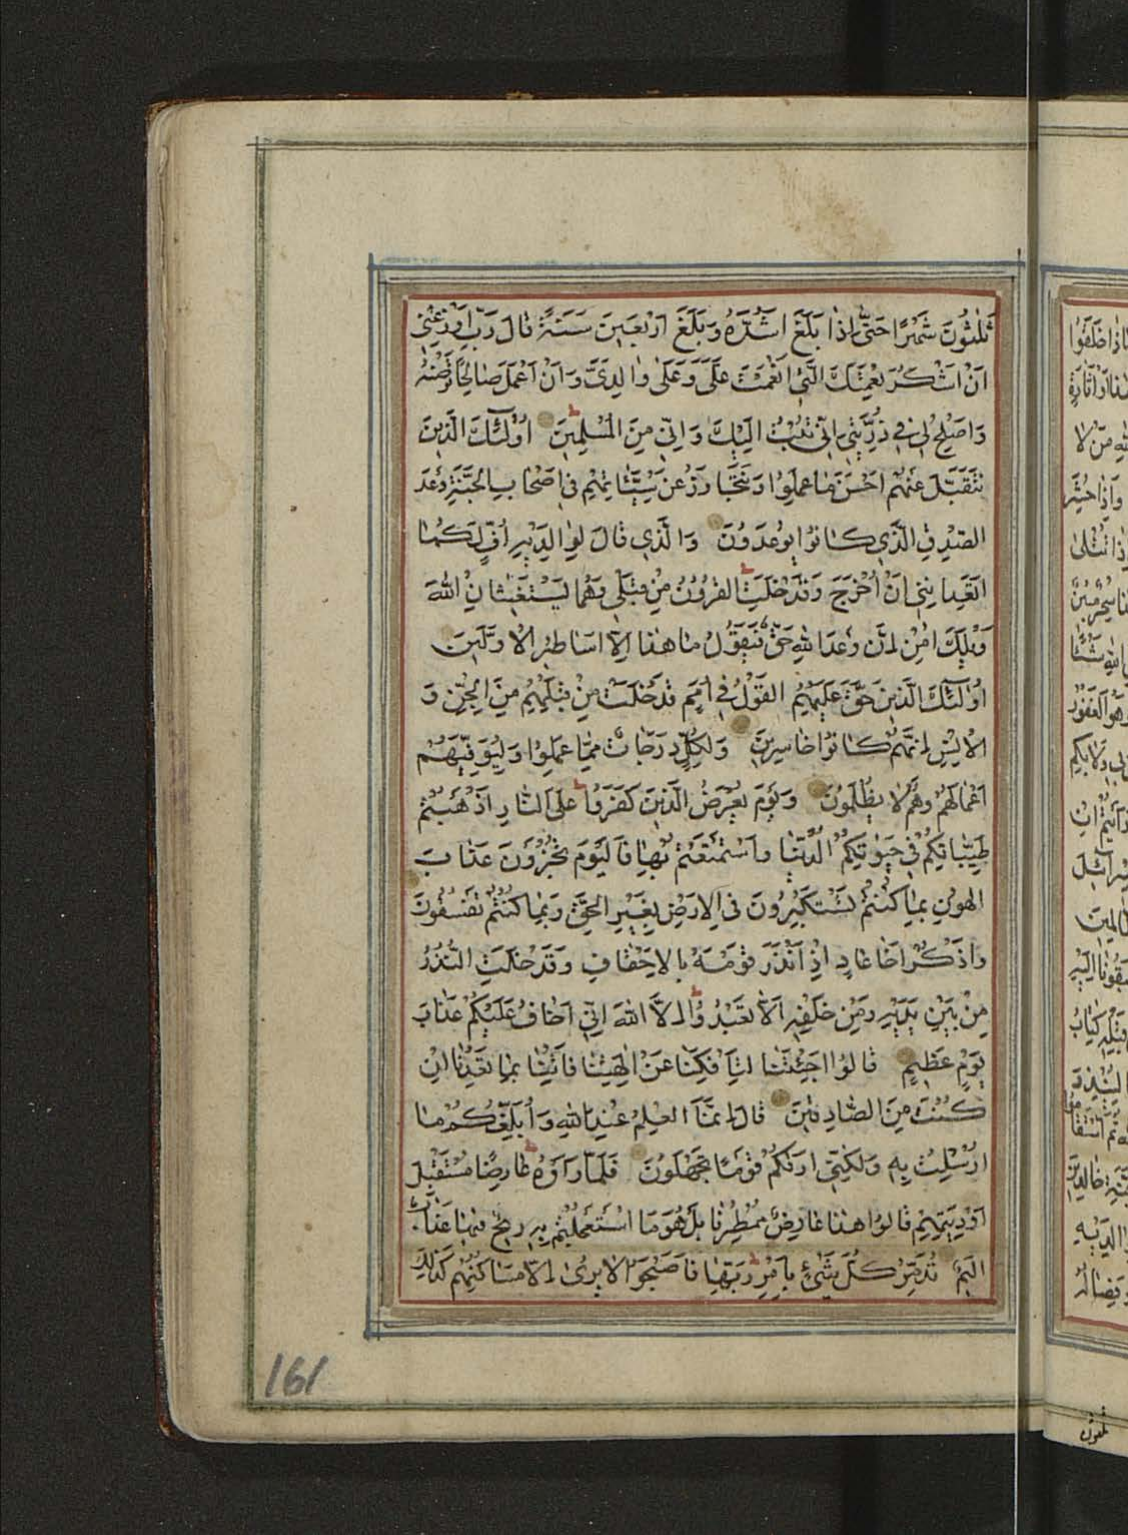 ثَلٰثُونَ شَهْرًا حَتّٰى اِذَا بَلَغَ اَشُدَّهُ وَبَلَغَ اَرْبَعِينَ سَنَةً قَالَ رَبِّ اَوْزِعْنِى
اَنْ اَشْكُرَ نِعْمَتَكَ الَّتِى اَنْعَمْتَ عَلَىَّ وَعَلٰى وَالِدَىَّ وَاَنْ اَعْمَلَ صَالِحًا تَرْضٰيهُ
وَاَصْلِحْ لِى فِى ذُرِّيَّتِى اِنِّى تُبْتُ اِلَيْكَ وَاِنِّى مِنَ الْمُسْلِمِينَ اُولٰٓئِكَ الَّذِينَ
نَتَقَبَّلُ عَنْهُمْ اَحْسَنَ مَا عَمِلُوا وَنَتَجَاوَزُ عَنْ سَيِّئَاتِهِمْ فِى اَصْحَابِ الْجَنَّةِ وَعْدَ
الصِّدْقِ الَّذِى كَانُوا يُوعَدُونَ وَالَّذِى قَالَ لِوَالِدَيْهِ اُفٍّ لَكُمَا
اَتَعِدَانِنِى اَنْ اُخْرَجَ وَقَدْ خَلَتِ الْقُرُونُ مِنْ قَبْلِى وَهُمَا يَسْتَغِيثَانِ اللّٰهَ
وَيْلَكَ اٰمِنْ اِنَّ وَعْدَ اللّٰهِ حَقٌّ فَيَقُولُ مَا هٰذَا اِلَّا اَسَاطِيرُ الْاَوَّلِينَ
اُولٰٓئِكَ الَّذِينَ حَقَّ عَلَيْهِمُ الْقَوْلُ فِى اُمَمٍ قَدْ خَلَتْ مِنْ قَبْلِهِمْ مِنَ الْجِنِّ وَ
الْاِنْسِ اِنَّهُمْ كَانُوا خَاسِرِينَ وَلِكُلٍّ دَرَجَاتٌ مِمَّا عَمِلُوا وَلِيُوَفِّيَهُمْ
اَعْمَالَهُمْ وَهُمْ لَا يُظْلَمُونَ وَيَوْمَ يُعْرَضُ الَّذِينَ كَفَرُوا عَلَى النَّارِ اَذْهَبْتُمْ
طَيِّبَاتِكُمْ فِى حَيٰوتِكُمُ الدُّنْيَا وَاسْتَمْتَعْتُمْ بِهَا فَالْيَوْمَ تُجْزَوْنَ عَذَابَ
الْهُونِ بِمَا كُنْتُمْ تَسْتَكْبِرُونَ فِى الْاَرْضِ بِغَيْرِ الْحَقِّ وَبِمَا كُنْتُمْ تَفْسُقُونَ
وَاذْكُرْ اَخَا عَادٍ اِذْ اَنْذَرَ قَوْمَهُ بِالْاَحْقَافِ وَقَدْ خَلَتِ النُّذُرُ
مِنْ بَيْنِ يَدَيْهِ وَمِنْ خَلْفِهِ اَلَّا تَعْبُدُوا اِلَّا اللّٰهَ اِنِّى اَخَافُ عَلَيْكُمْ عَذَابَ
يَوْمٍ عَظِيمٍ قَالُوا اَجِئْتَنَا لِتَاْفِكَنَا عَنْ اٰلِهَتِنَا فَاْتِنَا بِمَا تَعِدُنَا اِنْ
كُنْتَ مِنَ الصَّادِقِينَ قَالَ اِنَّمَا الْعِلْمُ عِنْدَ اللّٰهِ وَاُبَلِّغُكُمْ مَا
اُرْسِلْتُ بِهِ وَلٰكِنِّى اَرٰيكُمْ قَوْمًا تَجْهَلُونَ فَلَمَّا رَاَوْهُ عَارِضًا مُسْتَقْبِلَ
اَوْدِيَتِهِمْ قَالُوا هٰذَا عَارِضٌ مُمْطِرُنَا بَلْ هُوَ مَا اسْتَعْجَلْتُمْ بِهِ رِيحٌ فِيهَا عَذَابٌ
اَلِيمٌ تُدَمِّرُ كُلَّ شَىْءٍ بِاَمْرِ رَبِّهَا فَاَصْبَحُوا لَا يُرٰى اِلَّا مَسَاكِنُهُمْ كَذٰلِكَ
161